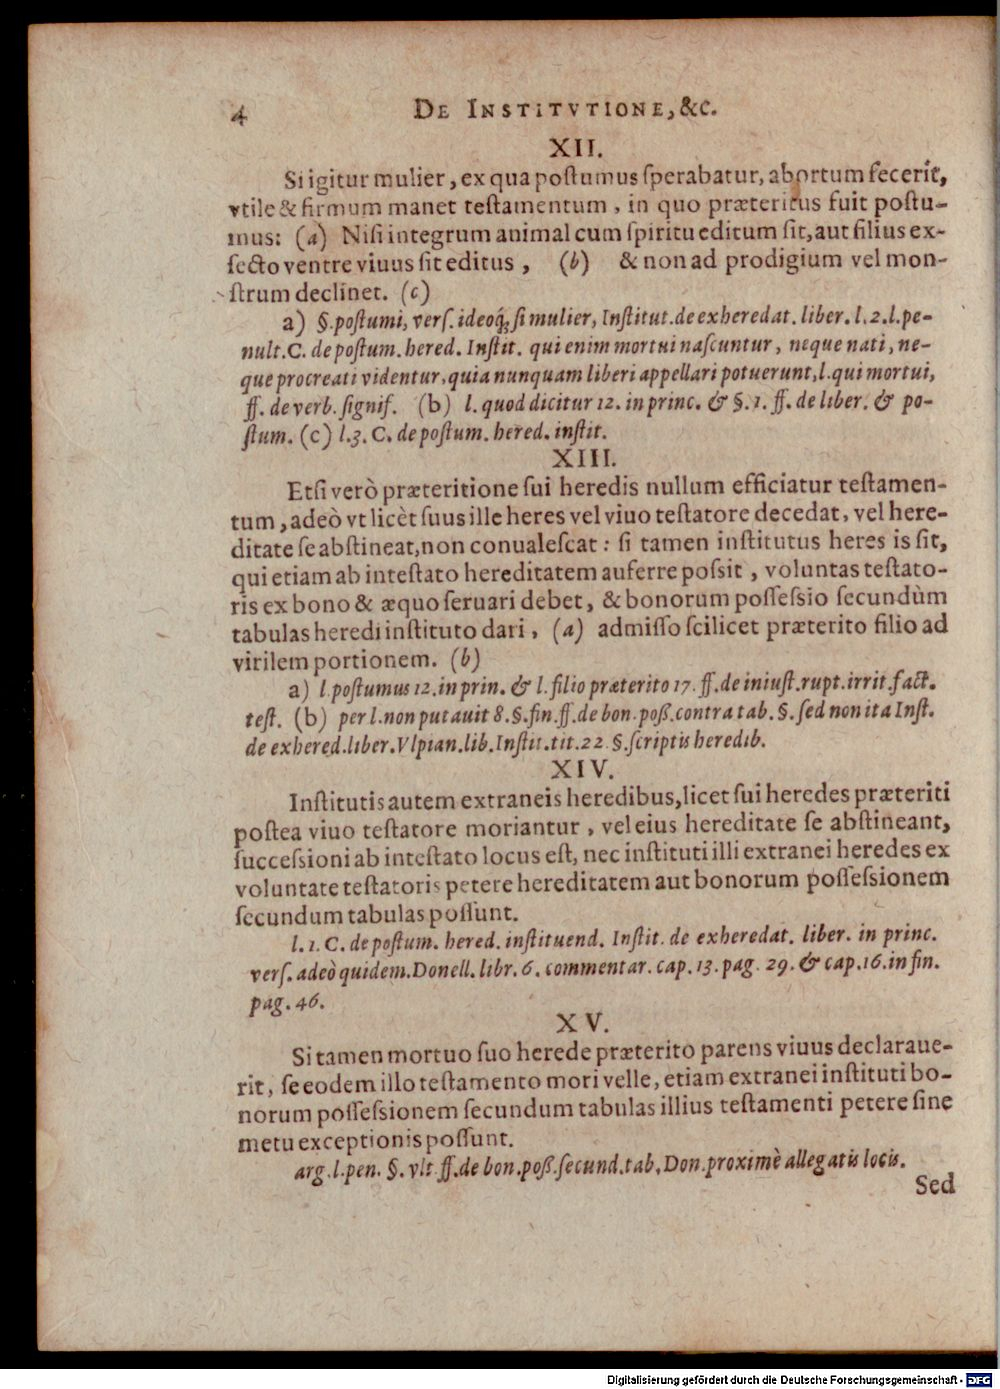 4 DE INSTITVTIONE, &c.
XII.
Si igitur mulier, ex qua postumus sperabatur, abortum fecerit,
vtile & firmum manet testamentum, in quo præteritus fuit postu-
mus: (a) Nisi integrum animal cum spiritu editum sit, aut filius ex-
secto ventre viuus sit editus, (b) & non ad prodigium vel mon-
strum declinet. (c)
a) §. postumi, vers. ideoq́; si mulier, Institut. de exheredat. liber. l. 2. l. pe-
nult. C. de postum. hered. Instit. qui enim mortui nascuntur, neque nati, ne-
que procreati videntur, quia nunquam liberi appellari potuerunt, l. qui mortui,
ff. de verb. signif. (b) l. quod dicitur 12. in princ. & §. 1. ff. de liber. & po-
stum. (c) l. 3. C. de postum. hered. instit.
XIII.
Etsi verò præteritione sui heredis nullum efficiatur testamen-
tum, adeò vt licèt suus ille heres vel viuo testatore decedat, vel here-
ditate se abstineat, non conualescat: si tamen institutus heres is sit,
qui etiam ab intestato hereditatem auferre possit, voluntas testato-
ris ex bono & æquo seruari debet, & bonorum possessio secundùm
tabulas heredi instituto dari, (a) admisso scilicet præterito filio ad
virilem portionem. (b)
a) l. postumus 12. in prin. & l. filio præterito 17. ff. de iniust. rupt. irrit. fact.
test. (b) per l. non putauit 8. §. fin. ff. de bon. poß. contra tab. §. sed non ita Inst.
de exhered. liber. Vlpian. lib. Instit. tit. 22 §. scriptis heredib.
XIV.
Institutis autem extraneis heredibus, licet sui heredes præteriti
postea viuo testatore moriantur, vel eius hereditate se abstineant,
successioni ab intestato locus est, nec instituti illi extranei heredes ex
voluntate testatoris petere hereditatem aut bonorum possessionem
secundum tabulas possunt.
l. 1. C. de postum. hered. instituend. Instit. de exheredat. liber. in princ.
vers. adeò quidem. Donell. libr. 6. commentar. cap. 13. pag. 29. & cap. 16. in fin.
pag. 46.
XV.
Si tamen mortuo suo herede præterito parens viuus declaraue-
rit, se eodem illo testamento mori velle, etiam extranei instituti bo-
norum possessionem secundum tabulas illius testamenti petere sine
metu exceptionis possunt.
arg. l. pen. §. vlt ff. de bon. poß. secund. tab. Don. proximè allegatis locis.
Sed
Digitalisierung gefördert durch die Deutsche Forschungsgemeinschaft - DFG